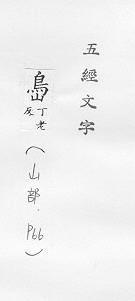 五經文字
㠀丁老反(山部.P66)